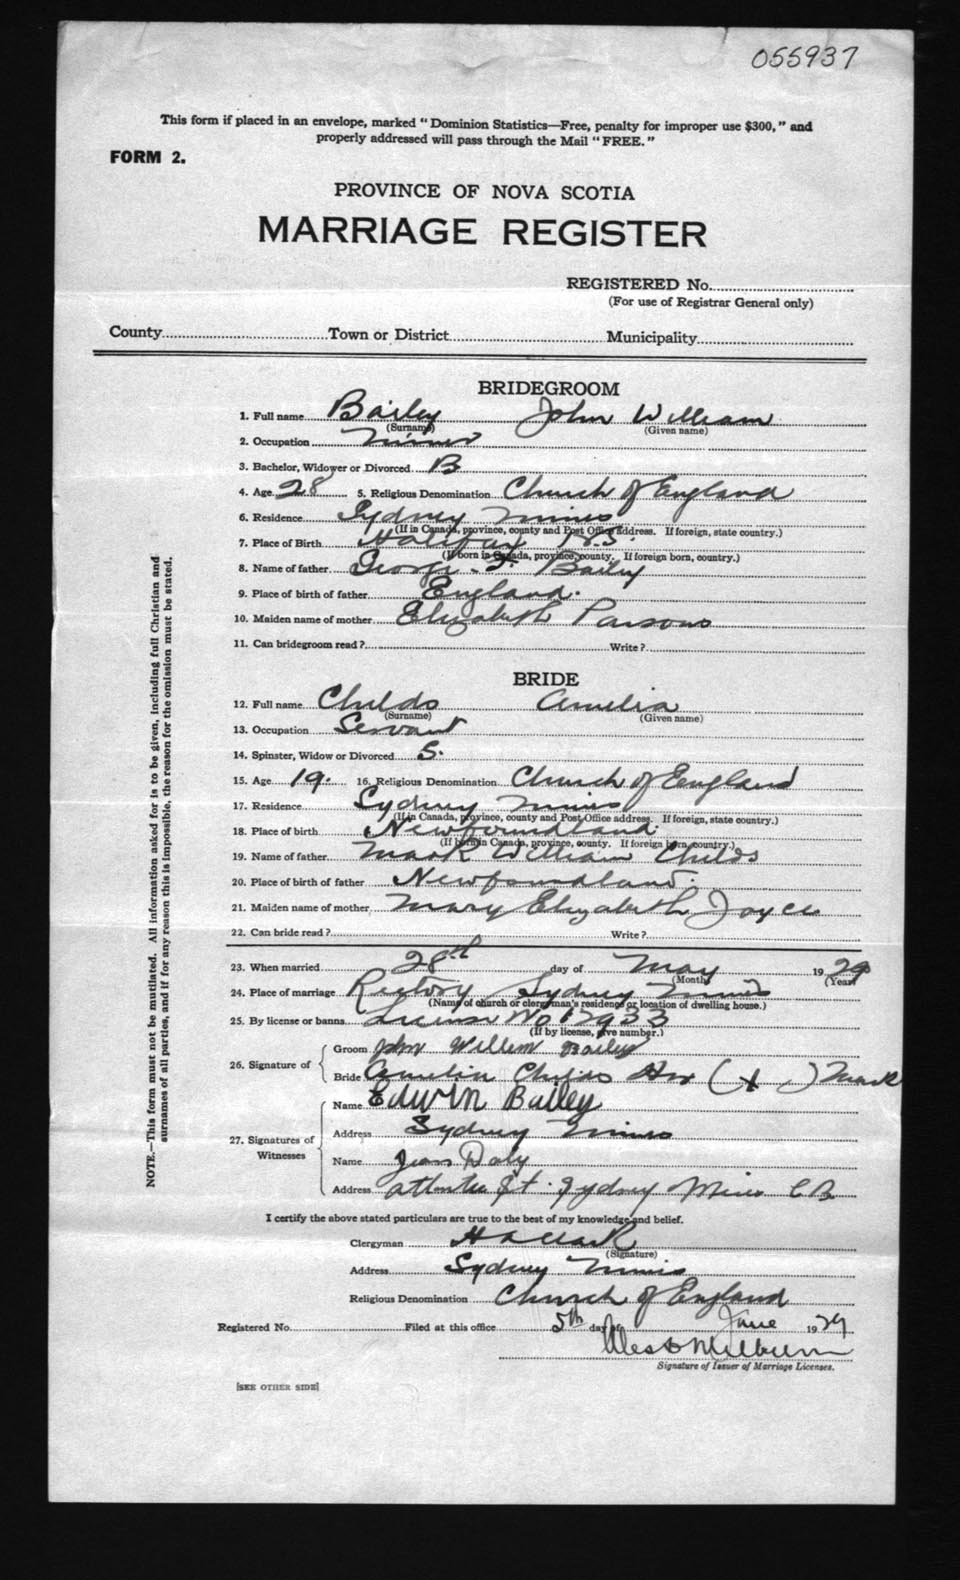 055937
This form if placed in an envelope, marked "Dominion Statistics—Free, penalty for improper use $300," and
properly addressed will pass through the Mail "FREE."
FORM 2.
PROVINCE OF NOVA SCOTIA
MARRIAGE REGISTER
REGISTERED No.
(For use of Registrar General only)
County Town or District Municipality
BRIDEGROOM
1. Full name Bailey John William
(Surname) (Given name)
2. Occupation Miner
3. Bachelor, Widower or Divorced B
4. Age 28 5. Religious Denomination Church of England
6. Residence Sydney Mines
(If in Canada, province, county and Post Office address. If foreign, state country.)
7. Place of Birth Halifax N.S.
(If born in Canada, province, county. If foreign born, country.)
8. Name of father George F. Bailey
9. Place of birth of father England.
10. Maiden name of mother Elizabeth Parsons
11. Can bridegroom read? Write?
BRIDE
12. Full name Childs Amelia
(Surname) (Given name)
13. Occupation Servant
14. Spinster, Widow or Divorced S.
15. Age 19. 16. Religious Denomination Church of England
17. Residence Sydney Mines
(If in Canada, province, county and Post Office address. If foreign, state country.)
18. Place of birth Newfoundland.
(If born in Canada, province, county. If foreign born, country.)
19. Name of father Mark William Childs
20. Place of birth of father Newfoundland.
21. Maiden name of mother Mary Elizabeth Joyce
22. Can bride read? Write?
23. When married 28th day of May 1929
(Month) (Year)
24. Place of marriage Rectory Sydney Mines
(Name of church or clergyman's residence or location of dwelling house.)
25. By license or banns License No 12933
(If by license, give number.)
26. Signature of
Groom John Willem Bailey
Bride Amelia Childs Her (X) Mark
27. Signatures of Witnesses
Name Edwin Bailey
Address Sydney Mines
Name Jean Daly
Address Atlantic St. Sydney Mines C.B.
I certify the above stated particulars are true to the best of my knowledge and belief.
Clergyman
(Signature)
Address Sydney Mines
Religious Denomination Church of England
Registered No. Filed at this office 5th day of June 1929
Signature of Issuer of Marriage Licenses.
[SEE OTHER SIDE]
NOTE.—This form must not be mutilated. All information asked for is to be given, including full Christian and
surnames of all parties, and if for any reason this is impossible, the reason for the omission must be stated.